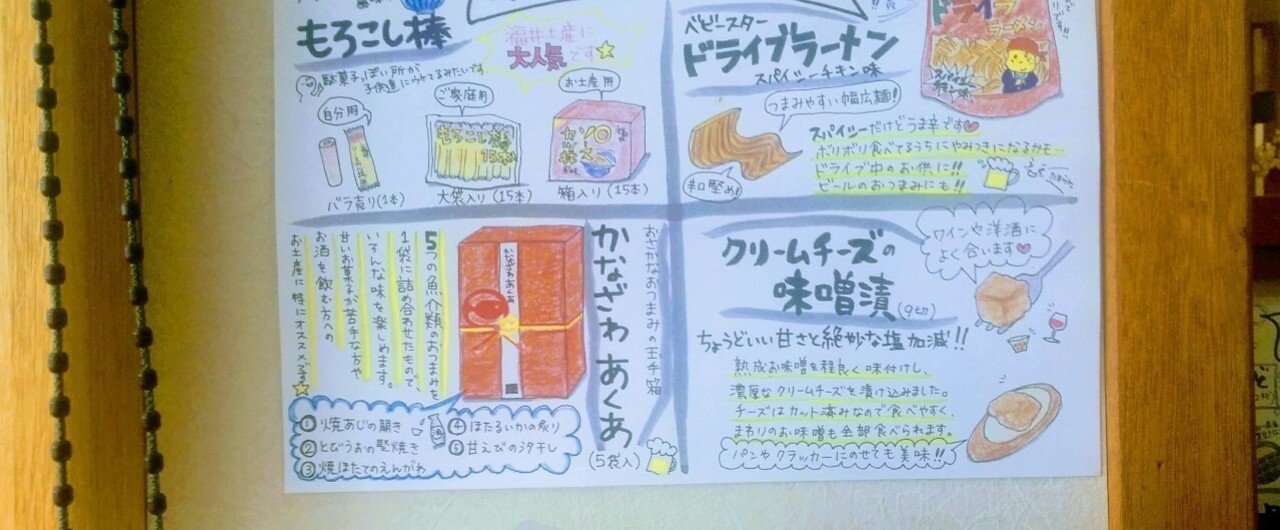 もろこし棒
福井土産に
大人気です
駄菓子っぽい所が
子供達にウケてるみたいです
自分用
バラ売り(1本)
ご家庭用
もろこし棒
15本
大袋入り(15本)
お土産用
箱入り(15本)
ベビースター
ドライブラーメン
スパイシーチキン味
ドライブ
ラーメン
つまみやすい幅広麺!
辛口堅め!
スパイシーだけどうま辛です
ボリボリ食べてるうちにやみつきになるかも…
ドライブ中のお供に!!
ビールのおつまみにも!!
おさかなおつまみの玉手箱
かなざわあくあ
(5袋入)
かなざわあくあ
5つの魚介類のおつまみを
1袋に詰め合わせたもので
いろんな味を楽しめます。
甘いお菓子が苦手な方や
お酒を飲む方への
お土産に特にオススメです
①焼あじの開き
②とびうおの堅焼き
③焼ほたてのえんがわ
④ほたるいかの炙り
⑤甘えびの夕干し
クリームチーズの
味噌漬(9切)
ワインや洋酒に
よく合います
ちょうどいい甘さと絶妙な塩加減!!
熟成お味噌を程良く味付けし、
濃厚なクリームチーズを漬け込みました。
チーズはカット済みなので食べやすく、
まわりのお味噌も全部食べられます。
パンやクラッカーにのせても美味!!